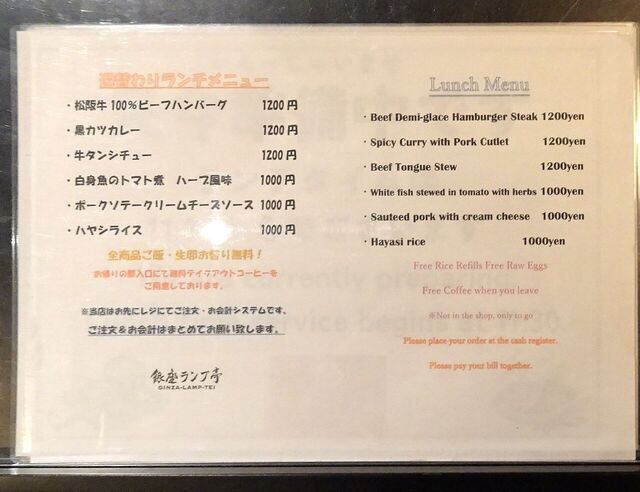 週替わりランチメニュー
・松阪牛 100％ビーフハンバーグ 1200円
・黒カツカレー 1200円
・牛タンシチュー 1200円
・白身魚のトマト煮 ハーブ風味 1000円
・ポークソテークリームチーズソース 1000円
・ハヤシライス 1000円
全商品ご飯・生卵お替り無料！
お帰りの際入口にて無料テイクアウトコーヒーを
ご用意しております。
※当店はお先にレジにてご注文・お会計システムです。
ご注文＆お会計はまとめてお願い致します。
銀座ランプ亭
GINZA-LAMP-TEI
Lunch Menu
・Beef Demi-glace Hamburger Steak 1200yen
・Spicy Curry with Pork Cutlet 1200yen
・Beef Tongue Stew 1200yen
・White fish stewed in tomato with herbs 1000yen
・Sauteed pork with cream cheese 1000yen
・Hayasi rice 1000yen
Free Rice Refills Free Raw Eggs
Free Coffee when you leave
※Not in the shop, only to go
Please place your order at the cash register.
Please pay your bill together.